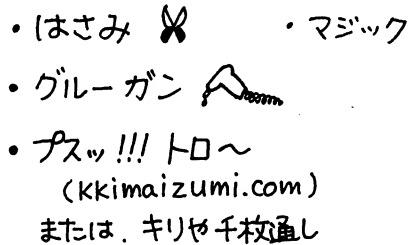 ・はさみ ・マジック
・グルーガン
・プスッ!!! トロ〜
(kkimaizumi.com)
または、キリや千枚通し